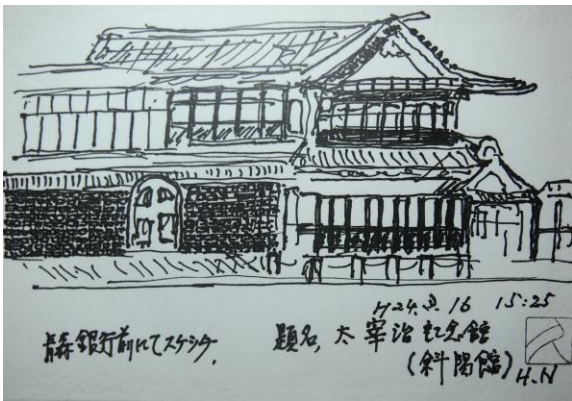 H24. . 16 15:25
青森銀行前にてスケッチ.
題名, 太宰治記念館
(斜陽館)
H.N